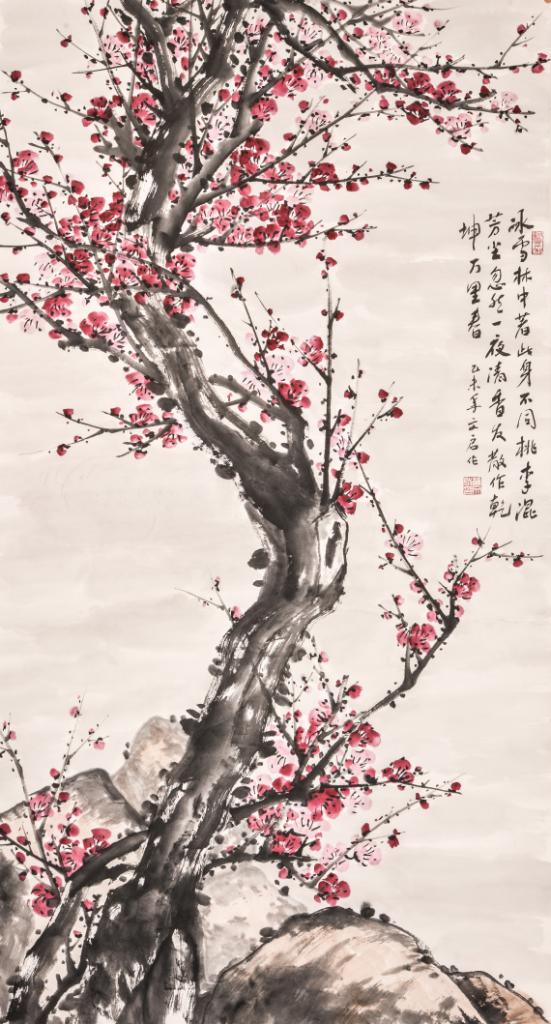 冰雪林中著此身不同桃李混
芳尘忽然一夜清香发散作乾
坤万里春
乙未年文启作